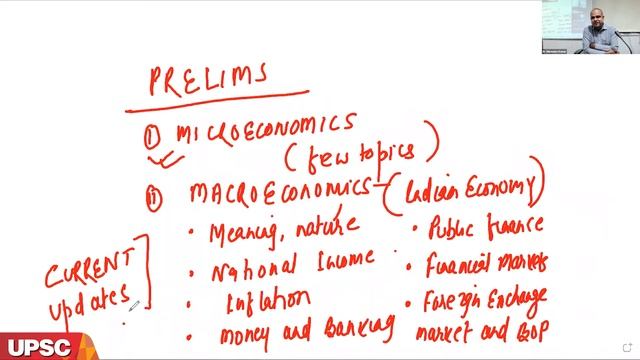 PRELIMS
(i) MICROECONOMICS
(few topics)
(ii) MACROECONOMICS - (Indian Economy)
• Meaning, nature
• National Income
• Inflation
• Money and Banking
• Public finance
• Financial Markets
• Foreign Exchange
market and BOP
CURRENT
updates
UPSC